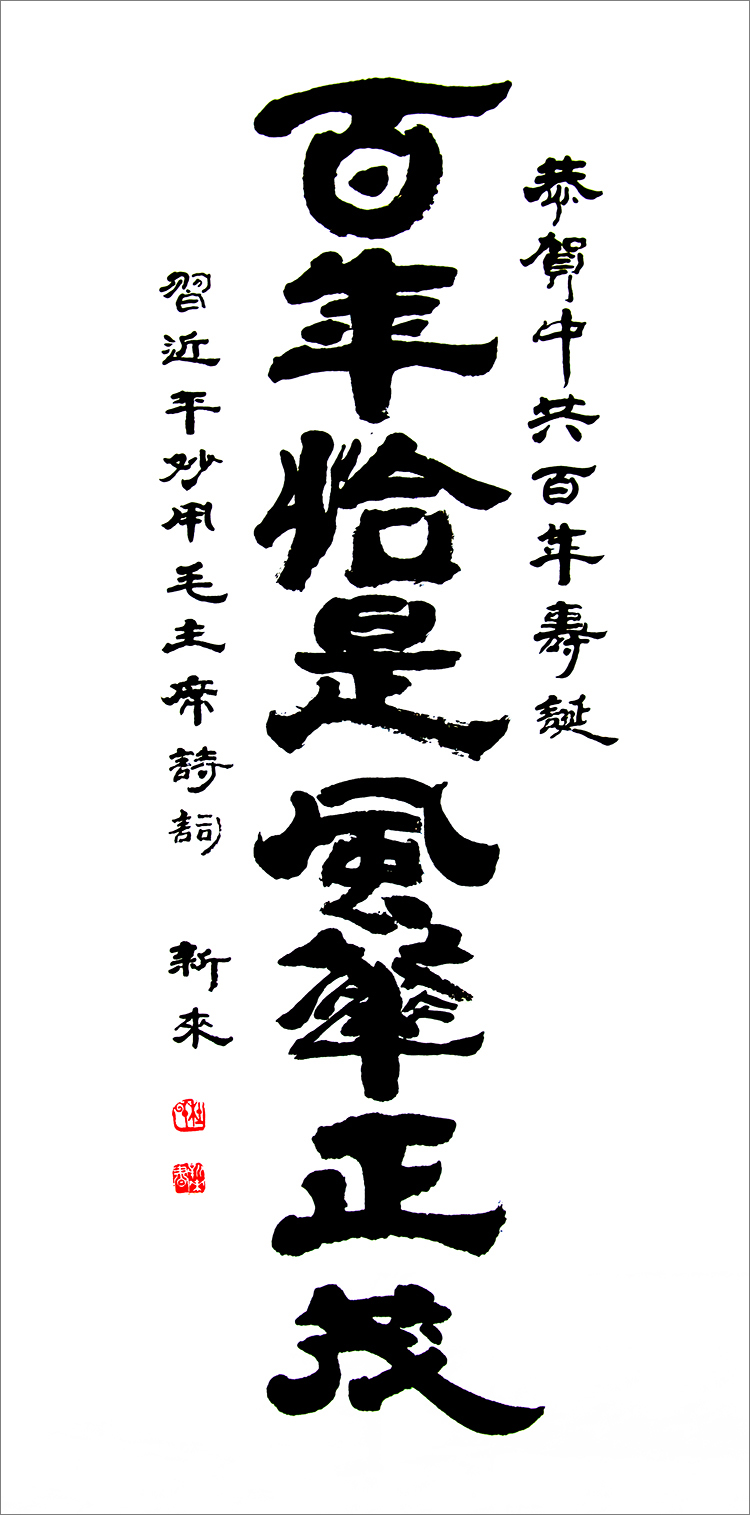 恭賀中共百年壽誕
百年恰是風華正茂
習近平妙用毛主席詩詞 新來